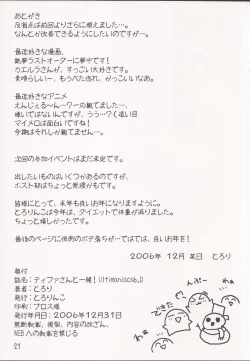 あとがき
反省点は前回よりさらに増えました…。
なんとか改善できるようにしたいのですが…。
最近好きな漫画。
銃夢ラストオーダーに夢中です!
カエルラさんが、すっごい大好きです。
素晴らしい…、もうべた惚れ、かっこいいなあ。
最近好きなアニメ
えんじぇる〜ん…?一応観てました…。
嫌いではないんですが、ううーっ?(遠い目
マイメロは面白いですね!
今期はそれしか観てません…。
次回の参加イベントはまだ未定です。
出したいものはいくつかあるのですが、
ホスト部はちょっと無理かもです。
皆様にとって、来年も良いお年になりますように。
とろりんこは今年は、ダイエットで体重が減りました。
ちょっと嬉しかったです。
最後のページに恒例のボテ落ちが…ではでは、良いお年を!
2006年 12月 某日 とろり
奥付
誌名:ティファさんと一緒!Ultimaniacsb,D
著者:とろり
発行:とろりんこ
印刷:プロス様
発行年月日:2006年12月31日
無断転載、複製、内容の改ざん、
WEBへの転載を禁じる
できた
んぷー
21